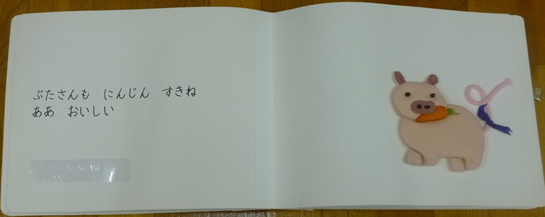 ぶたさんも　にんじん　すきね
ああ　おいしい